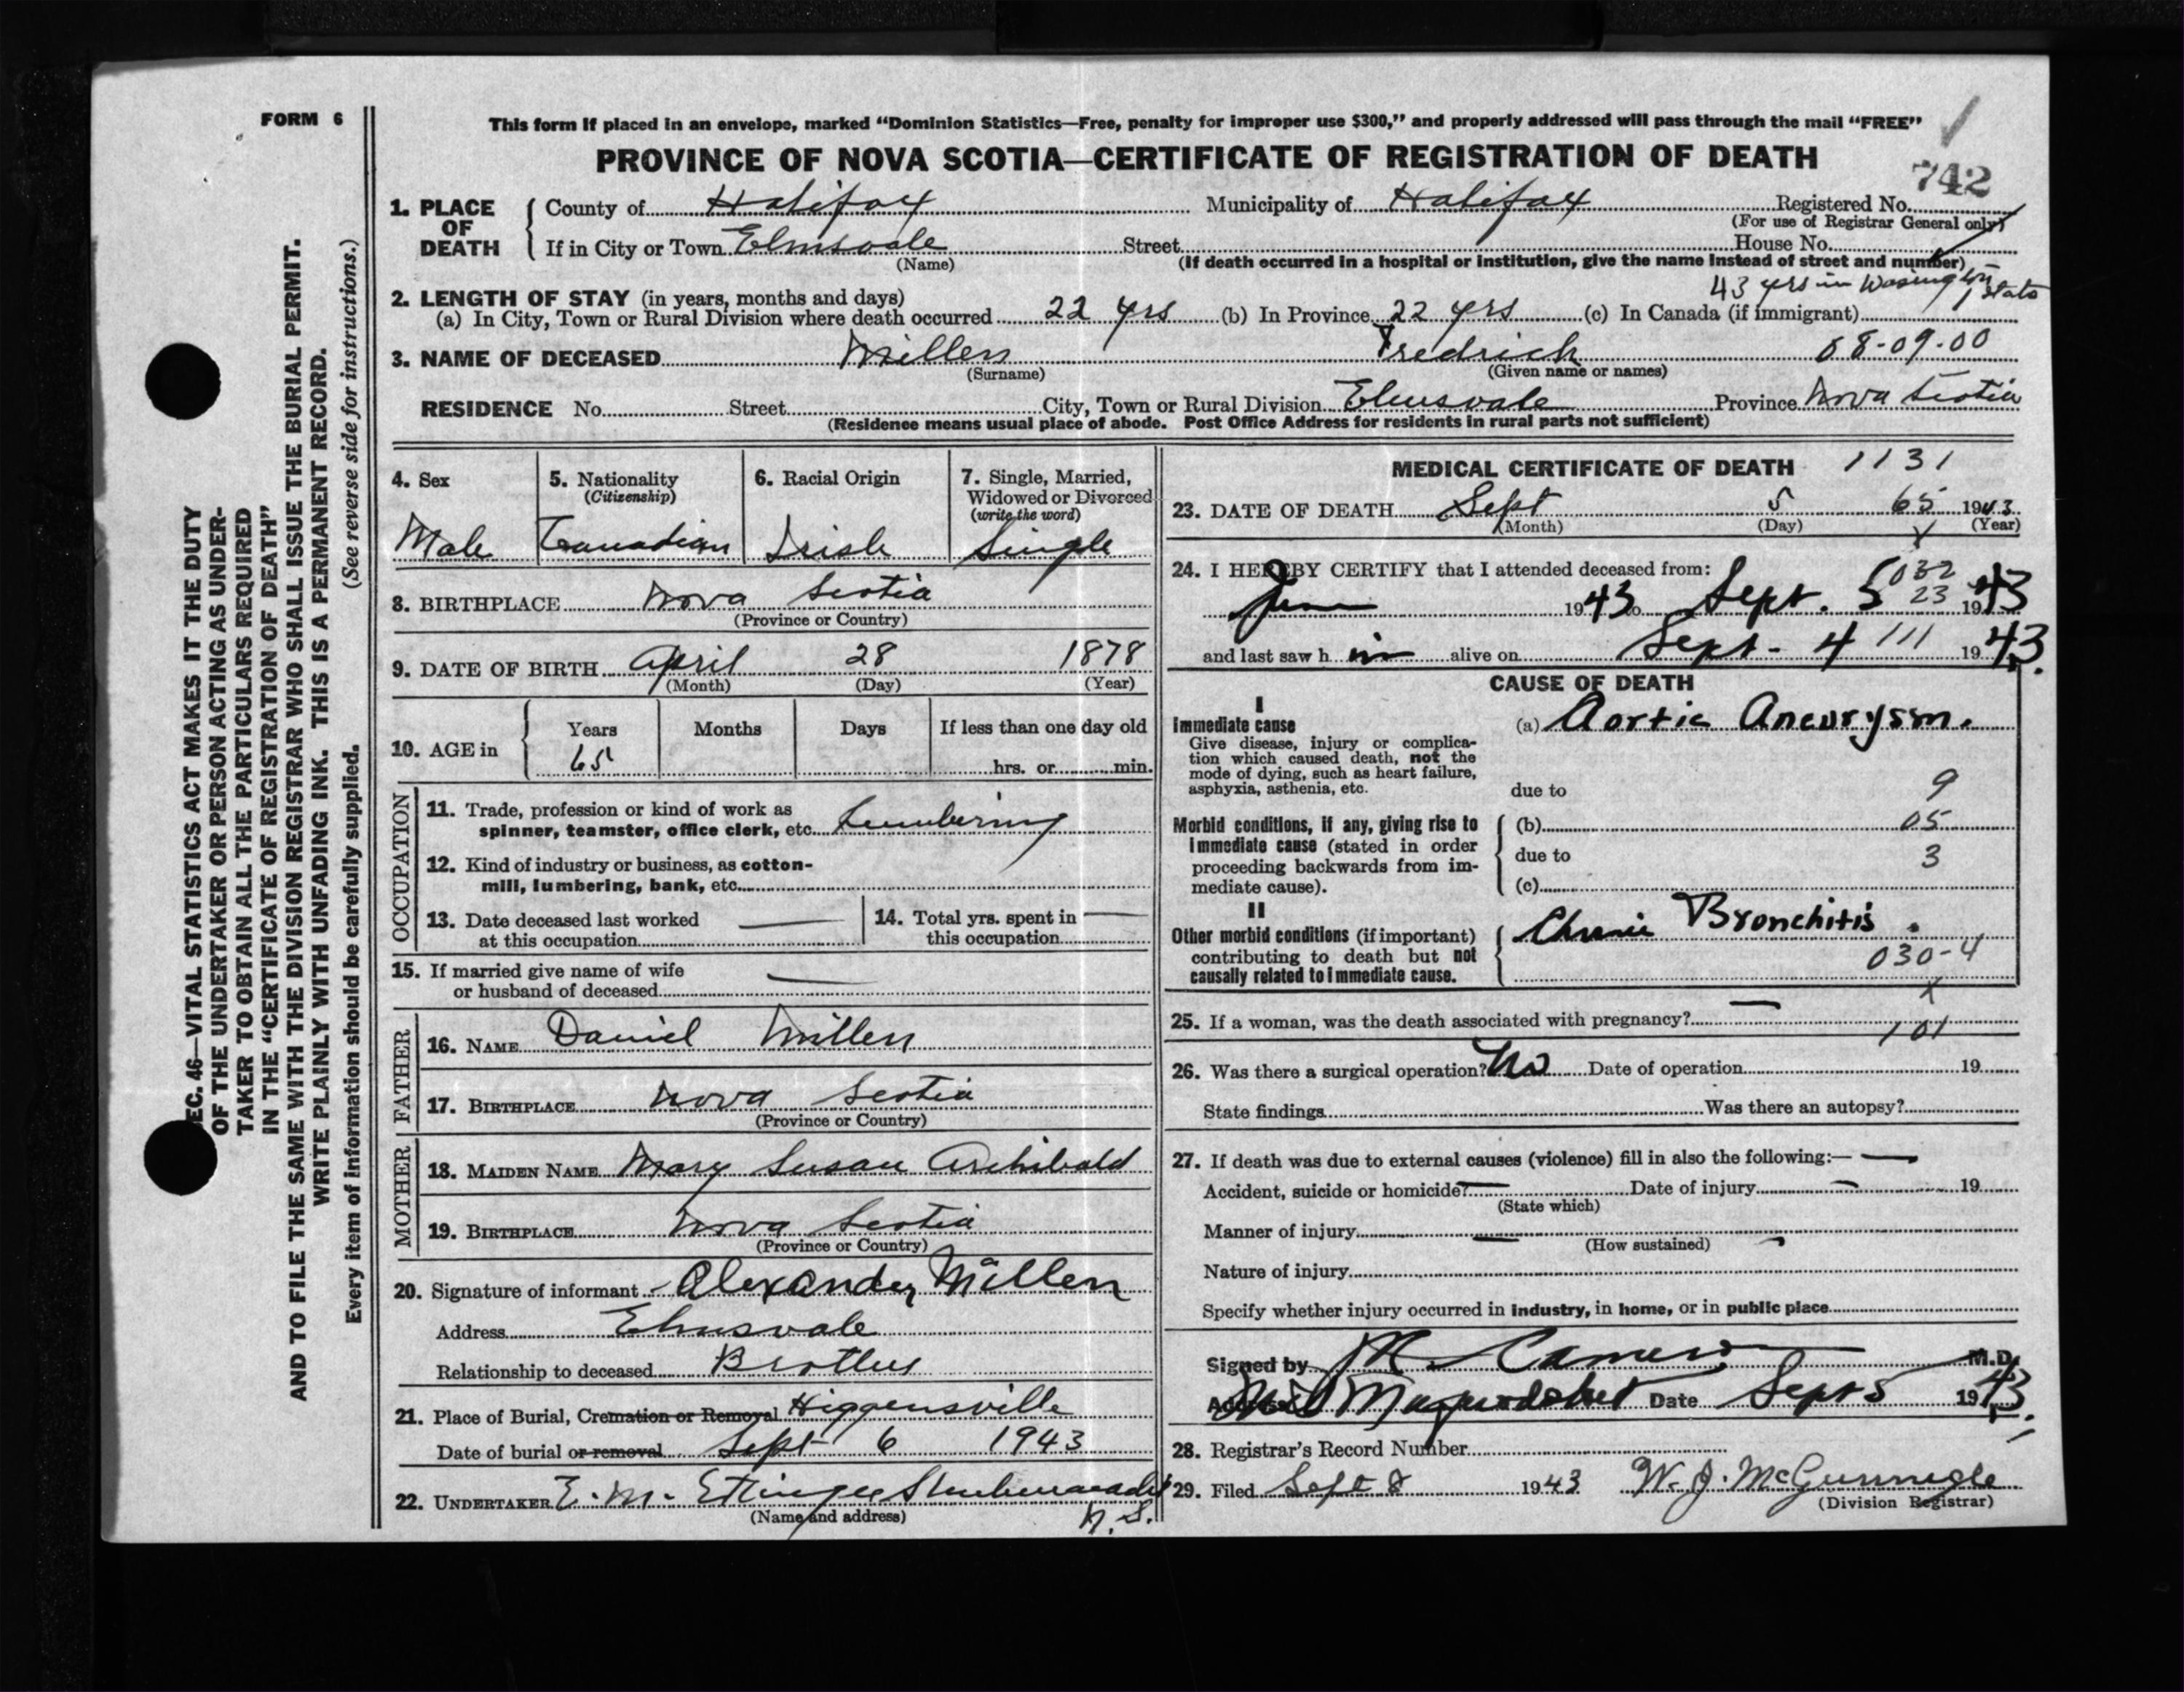 FORM 6
This form if placed in an envelope, marked “Dominion Statistics—Free, penalty for improper use $300,” and properly addressed will pass through the mail “FREE”
PROVINCE OF NOVA SCOTIA—CERTIFICATE OF REGISTRATION OF DEATH
742
1. PLACE OF DEATH County of Halifax Municipality of Halifax Registered No.
(For use of Registrar General only)
If in City or Town Elmsvale Street House No.
(Name) (If death occurred in a hospital or institution, give the name instead of street and number)
43 yrs in Wasington State
2. LENGTH OF STAY (in years, months and days)
(a) In City, Town or Rural Division where death occurred 22 yrs (b) In Province 22 yrs (c) In Canada (if immigrant)
3. NAME OF DECEASED Millen Fredrick 08-09-00
(Surname) (Given name or names)
RESIDENCE No. Street City, Town or Rural Division Elmsvale Province Nova Scotia
(Residence means usual place of abode. Post Office Address for residents in rural parts not sufficient)
4. Sex
Male
5. Nationality
(Citizenship)
Canadian
6. Racial Origin
Irish
7. Single, Married,
Widowed or Divorced
(write the word)
Single
8. BIRTHPLACE Nova Scotia
(Province or Country)
9. DATE OF BIRTH April 28 1878
(Month) (Day) (Year)
10. AGE in Years Months Days If less than one day old
65 hrs. or min.
OCCUPATION
11. Trade, profession or kind of work as
spinner, teamster, office clerk, etc. Lumbering
12. Kind of industry or business, as cotton-
mill, lumbering, bank, etc.
13. Date deceased last worked
at this occupation
14. Total yrs. spent in
this occupation
15. If married give name of wife
or husband of deceased
FATHER
16. NAME Daniel Millen
17. BIRTHPLACE Nova Scotia
(Province or Country)
MOTHER
18. MAIDEN NAME Mary Susan Archibald
19. BIRTHPLACE Nova Scotia
(Province or Country)
20. Signature of informant Alexander Millen
Address Elmsvale
Relationship to deceased Brother
21. Place of Burial, Cremation or Removal Higgensville
Date of burial or removal Sept 6 1943
22. UNDERTAKER E. M. Ettinger Shubenacadie
(Name and address) N. S.
MEDICAL CERTIFICATE OF DEATH 1131
23. DATE OF DEATH Sept 5 65 1943
(Month) (Day) (Year)
24. I HEREBY CERTIFY that I attended deceased from: 032
June 1943 to Sept. 5 23 1943
and last saw h im alive on Sept - 4 111 1943.
CAUSE OF DEATH
I
Immediate cause (a) Aortic Aneurysm.
Give disease, injury or complica-
tion which caused death, not the
mode of dying, such as heart failure,
asphyxia, asthenia, etc.
due to 9
Morbid conditions, if any, giving rise to
immediate cause (stated in order
proceeding backwards from im-
mediate cause).
(b) 05
due to 3
(c)
II
Other morbid conditions (if important)
contributing to death but not
causally related to immediate cause.
Chronic Bronchitis.
030-4
X
25. If a woman, was the death associated with pregnancy? —
101
26. Was there a surgical operation? No Date of operation 19
State findings Was there an autopsy?
27. If death was due to external causes (violence) fill in also the following:— —
Accident, suicide or homicide? — Date of injury — 19
(State which)
Manner of injury —
(How sustained)
Nature of injury
Specify whether injury occurred in industry, in home, or in public place
Signed by M. Cameron M.D.
Address Mid Musquodoboit Date Sept 5 1943.
28. Registrar's Record Number
29. Filed Sept 8 1943 W. J. McGunnigle
(Division Registrar)
EC. 46—VITAL STATISTICS ACT MAKES IT THE DUTY
OF THE UNDERTAKER OR PERSON ACTING AS UNDER-
TAKER TO OBTAIN ALL THE PARTICULARS REQUIRED
IN THE “CERTIFICATE OF REGISTRATION OF DEATH”
AND TO FILE THE SAME WITH THE DIVISION REGISTRAR WHO SHALL ISSUE THE BURIAL PERMIT.
WRITE PLAINLY WITH UNFADING INK. THIS IS A PERMANENT RECORD.
Every item of information should be carefully supplied. (See reverse side for instructions.)